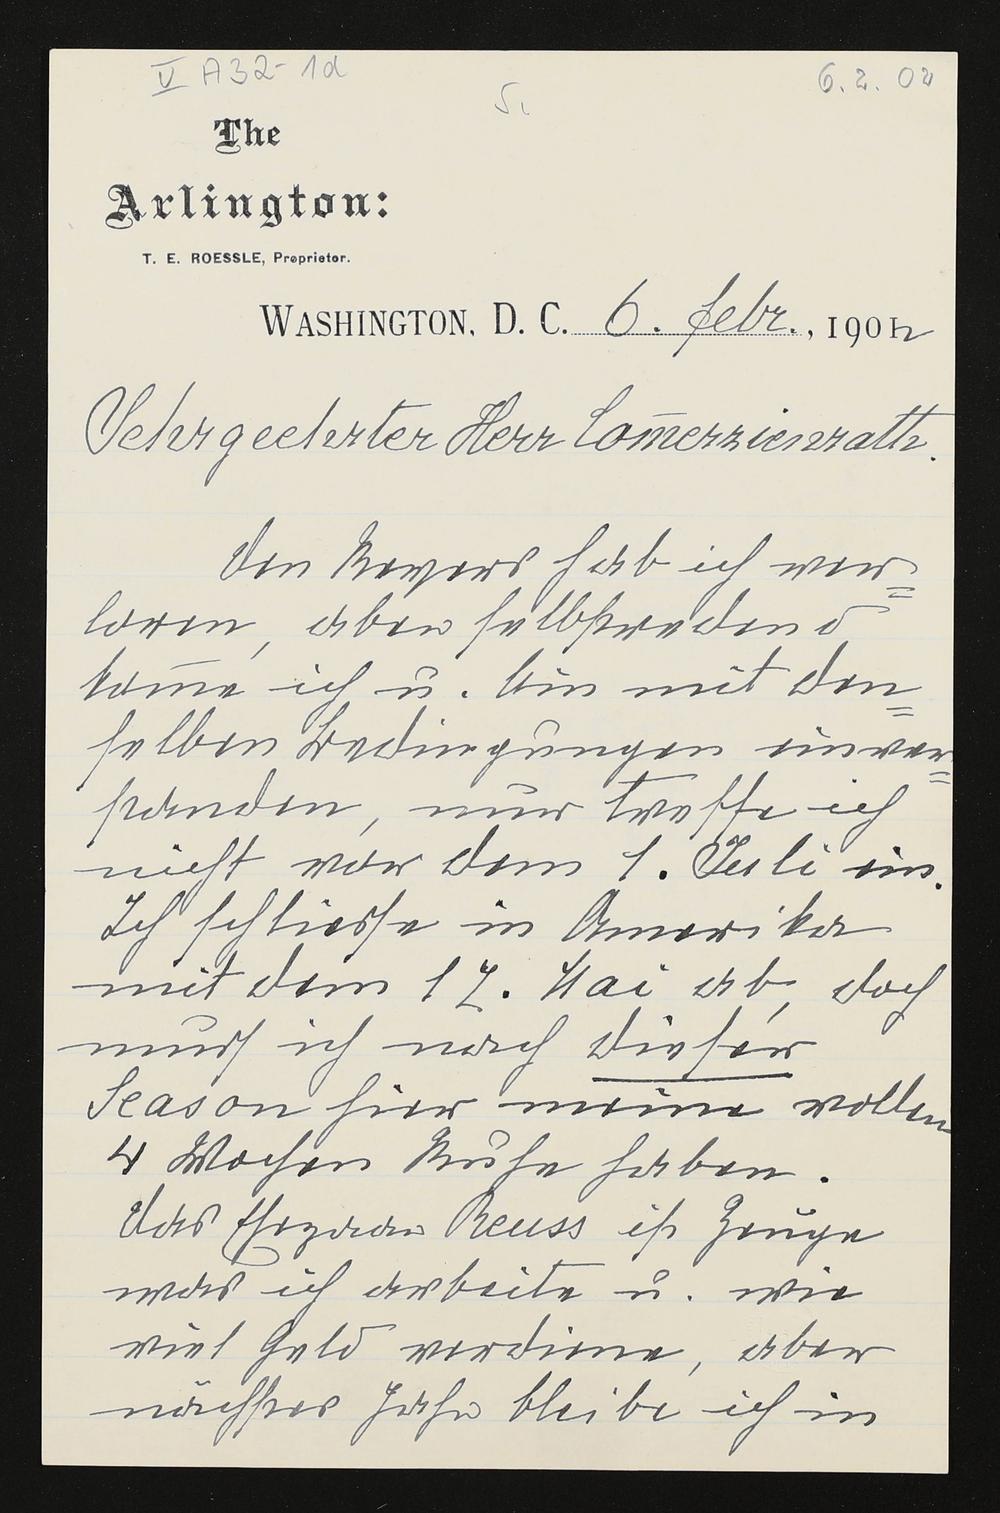 V A32-1d
6.2.02
5.
The
Arlington:
T. E. ROESSLE, Proprietor.
WASHINGTON, D. C. 6. febr., 1902
Sehrgeehrter Herr Com̅erzienrath.
Den Revers hab ich ver=
loren, aber selbstredend
kom̅e ich u. bin mit den=
selben Bedingungen einver=
standen, nur treffe ich
nicht vor dem 1. Juli ein.
Ich schliesse in Amerika
mit dem 17. Mai ab, doch
muss ich nach dieser
Season hier meine vollen
4 Wochen Ruhe haben.
Das Ehepaar Reuss ist Zeuge
was ich arbeite u. wie
viel Geld verdiene, aber
nächstes Jahr bleibe ich in